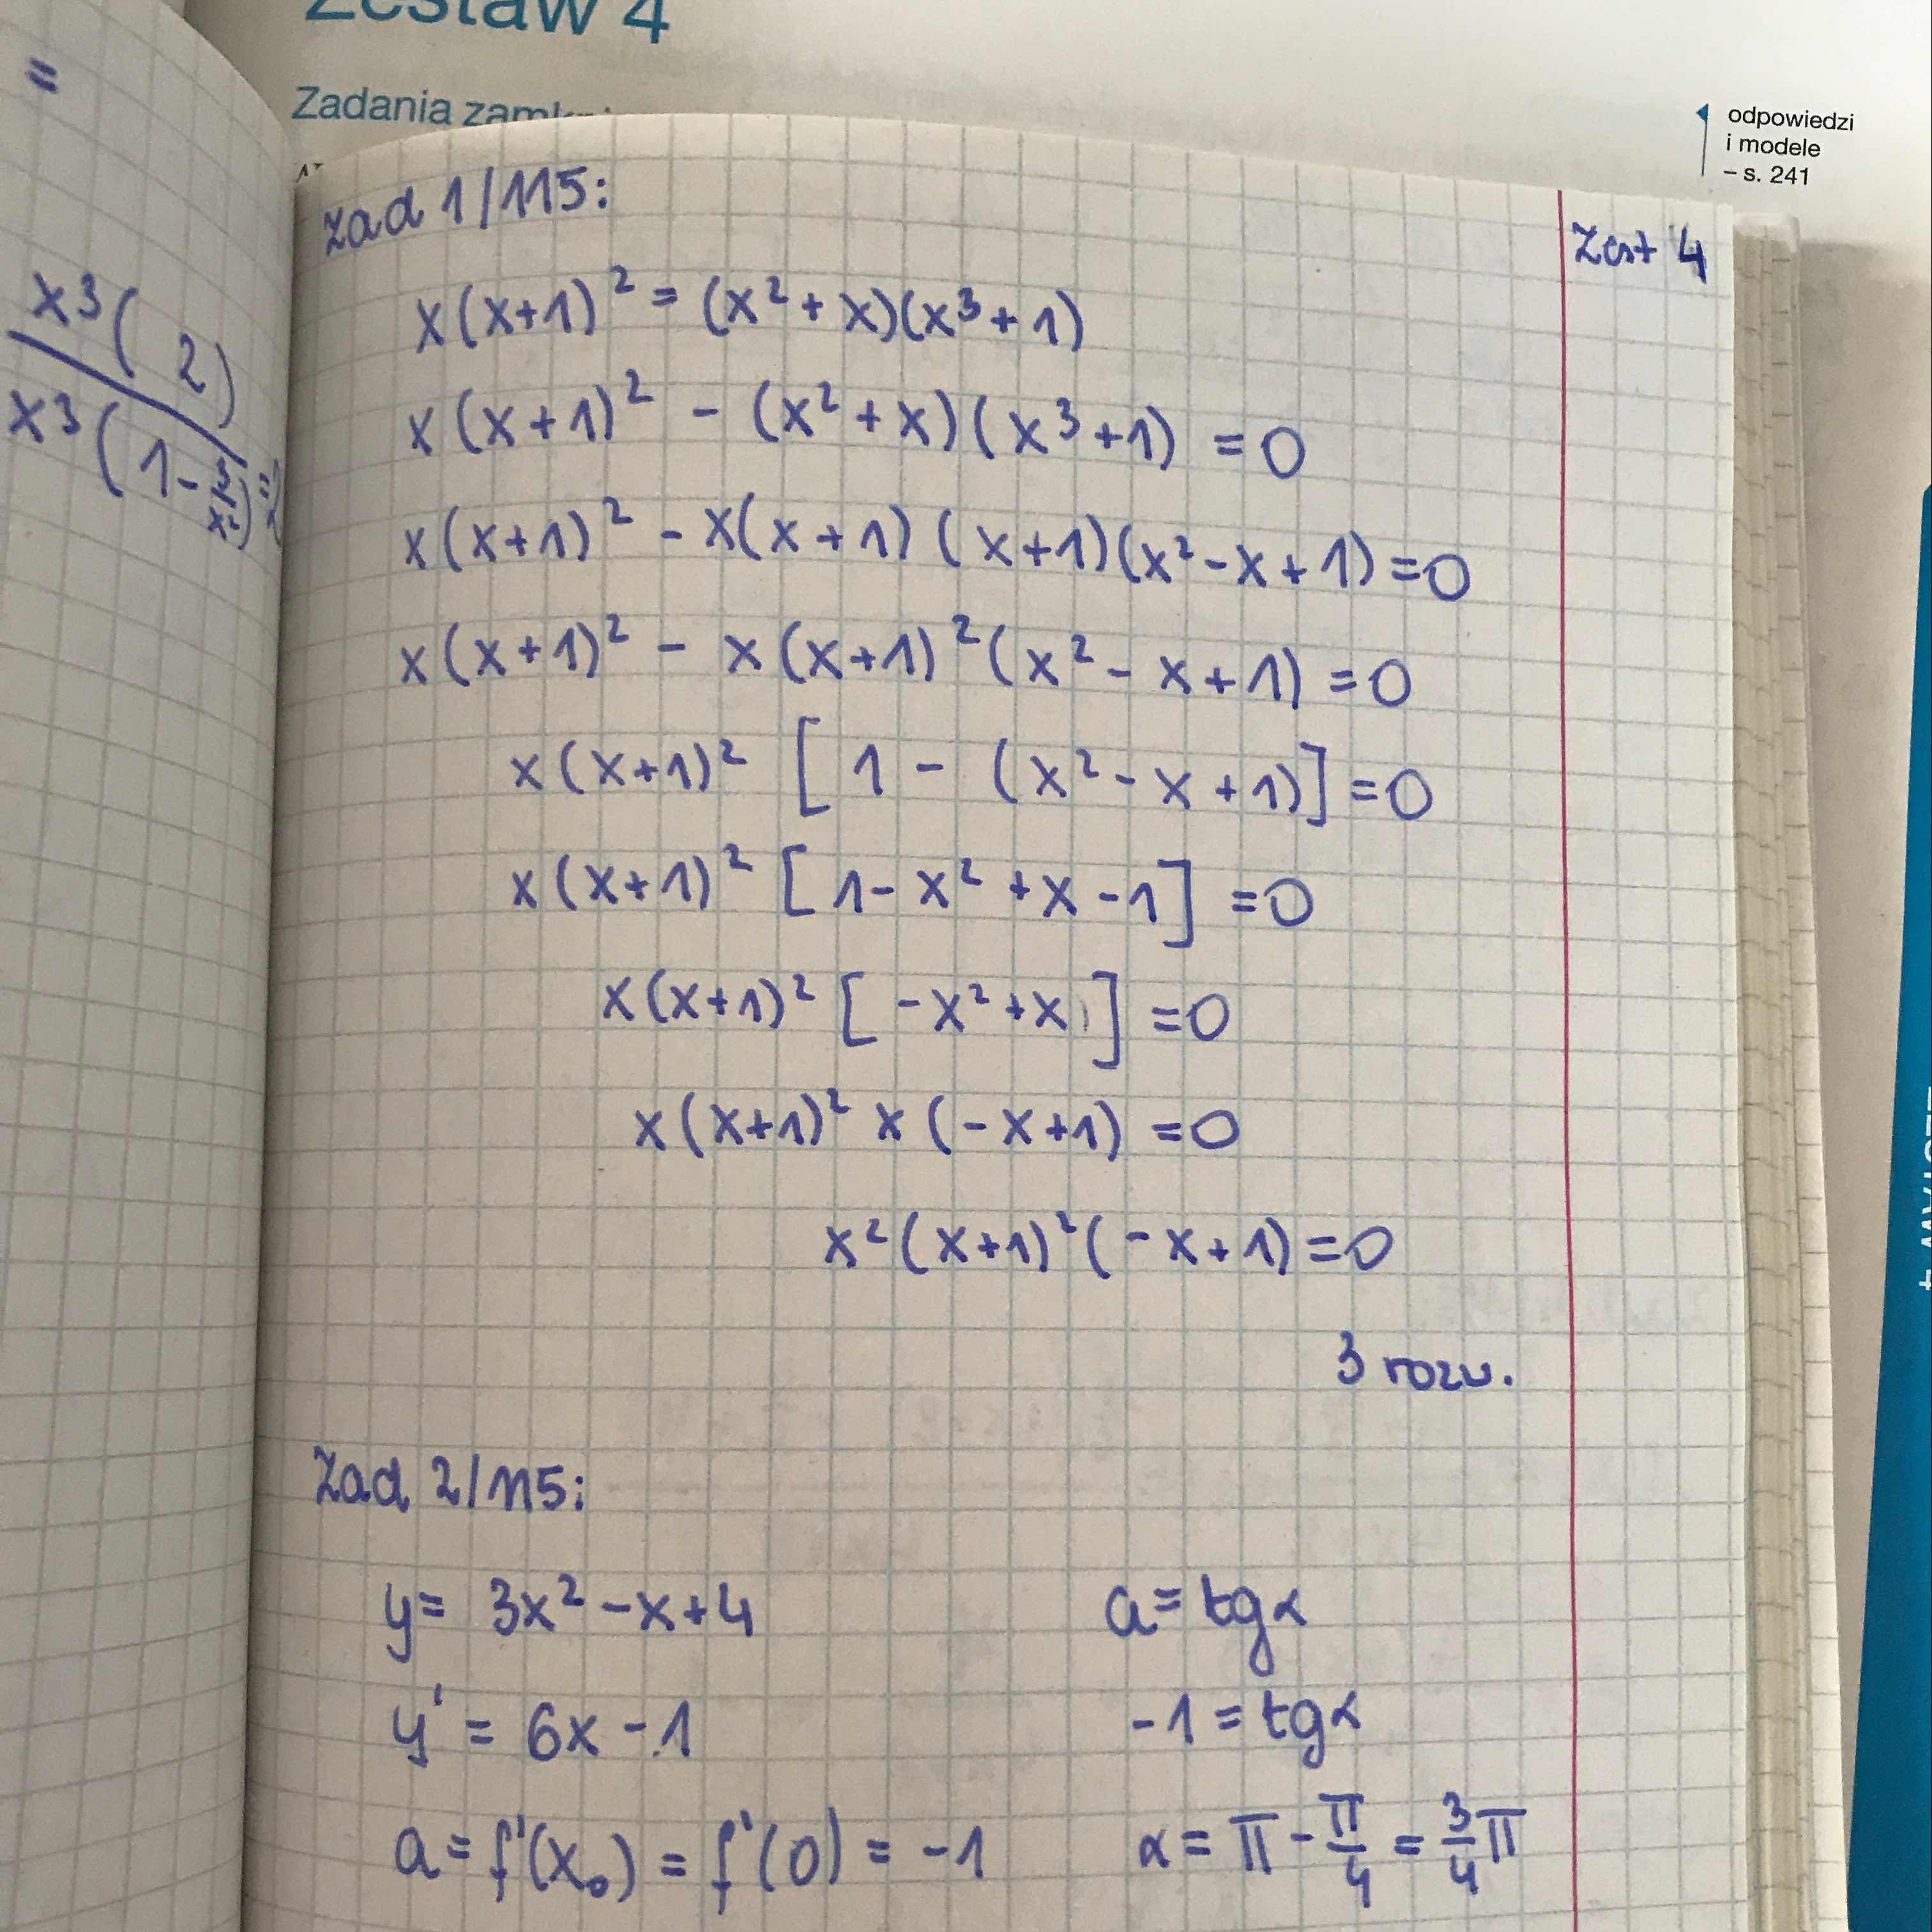 Zestaw 4
Zadania
odpowiedzi
i modele
– s. 241
=
x³( 2)
x³(1-
zad 1/115:
Zest 4
x(x+1)² = (x²+x)(x³+1)
x(x+1)² - (x²+x)(x³+1) =0
x(x+1)² - x(x+1)(x+1)(x²-x+1)=0
x(x+1)² - x(x+1)²(x²-x+1)=0
x(x+1)² [1-(x²-x+1)]=0
x(x+1)² [1-x²+x-1] =0
x(x+1)² [-x²+x] =0
x(x+1)² x(-x+1) =0
x²(x+1)²(-x+1)=0
3 rozw.
Zad 2/115:
y= 3x²-x+4
a=tgα
y' = 6x-1
-1=tgα
a=f'(x₀)=f'(0)=-1
α=π-π/4=3/4π